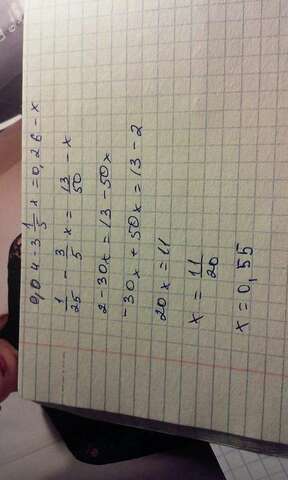 0,04 - 3 1/5 x = 0,26 - x
1/25 - 3/5 x = 13/50 - x
2 - 30x = 13 - 50x
-30x + 50x = 13 - 2
20x = 11
x = 11/20
x = 0,55